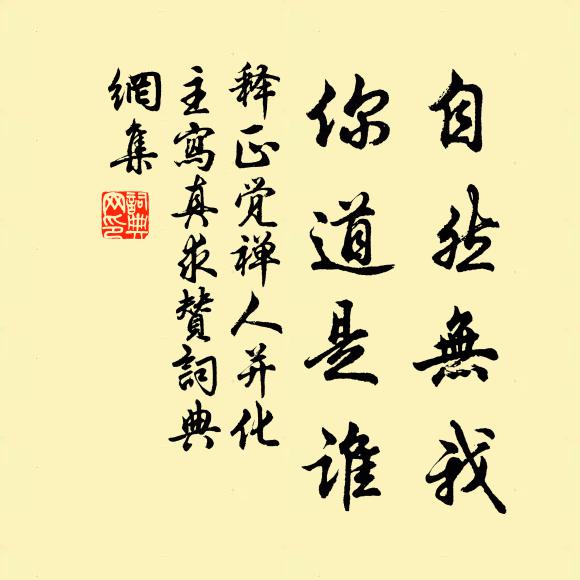 自然無我
你道是谁
释正觉禅人并化
主寫真求赞詞典
網集
詞典
网印